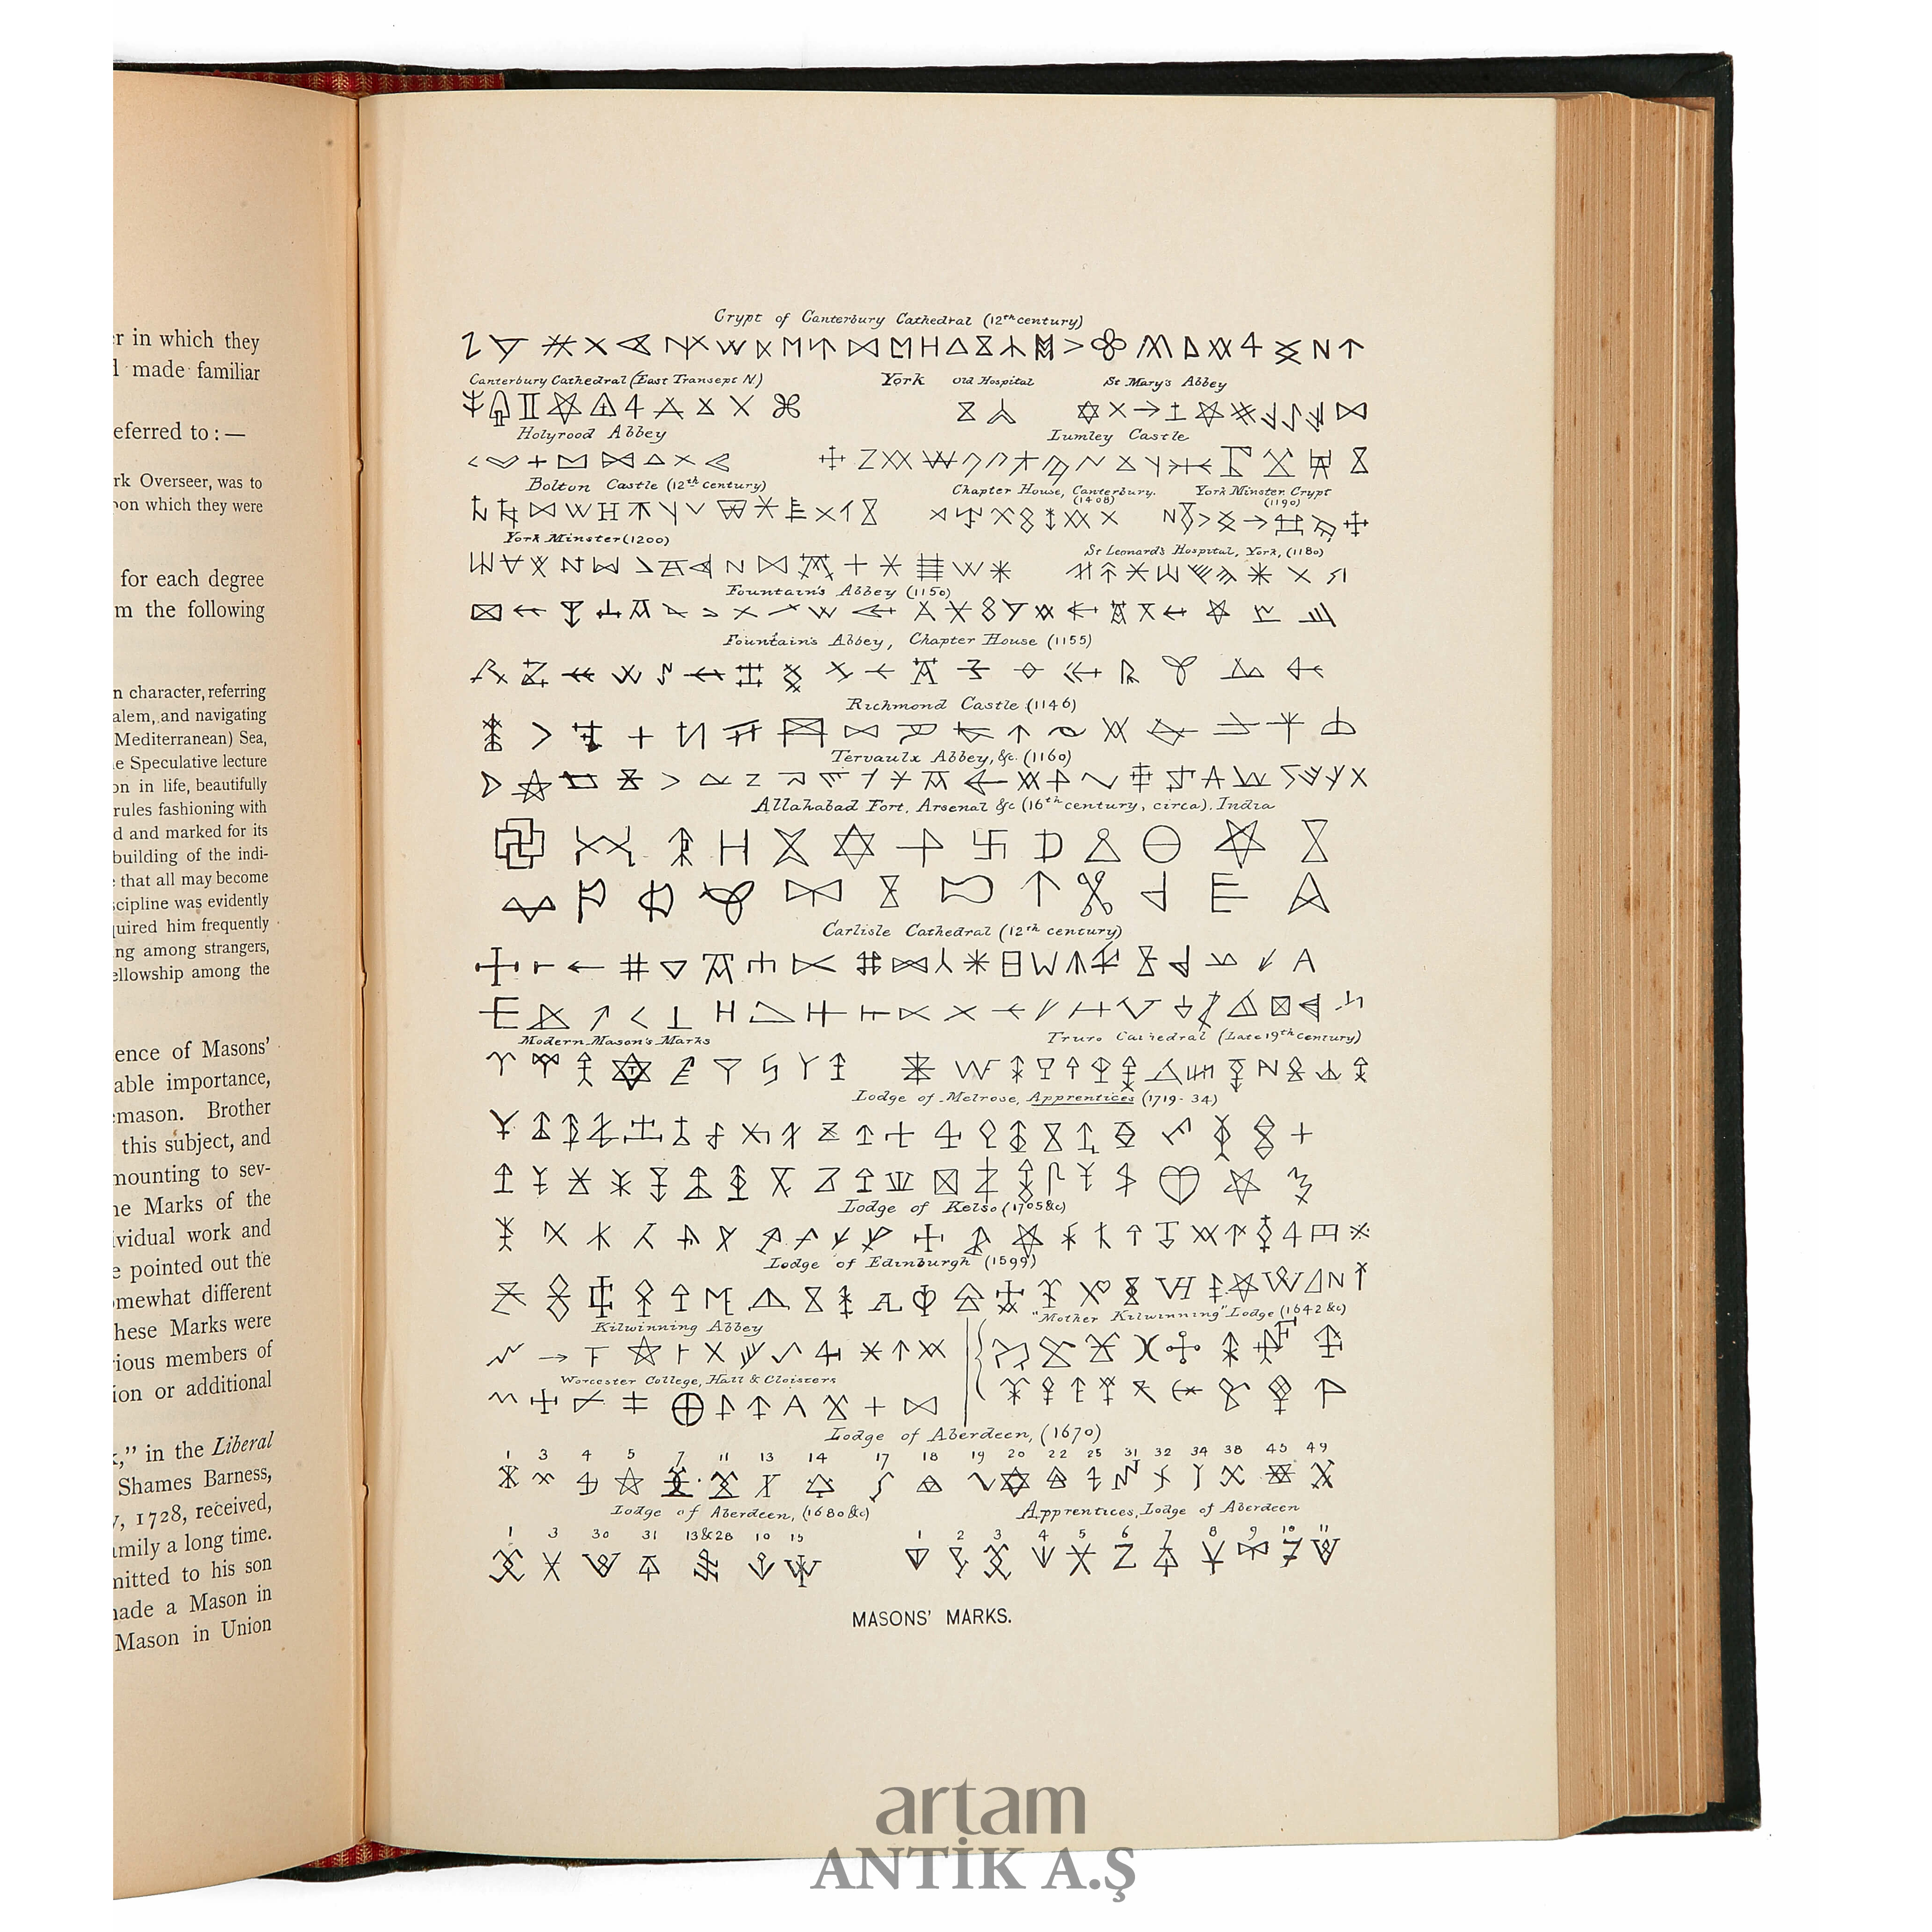 r in which they
made familiar
eferred to : —
rk Overseer, was to
on which they were
for each degree
m the following
n character, referring
alem, and navigating
Mediterranean) Sea,
e Speculative lecture
on in life, beautifully
rules fashioning with
d and marked for its
building of the indi-
that all may become
scipline was evidently
quired him frequently
ng among strangers,
ellowship among the
ence of Masons'
able importance,
emason. Brother
this subject, and
mounting to sev-
he Marks of the
ividual work and
e pointed out the
omewhat different
hese Marks were
rious members of
ion or additional
," in the Liberal
Shames Barness,
y, 1728, received,
amily a long time.
mitted to his son
nade a Mason in
Mason in Union
Crypt of Canterbury Cathedral (12th century)
Canterbury Cathedral (East Transept N.) York Old Hospital St Mary's Abbey
Holyrood Abbey Lumley Castle
Bolton Castle (12th century) Chapter House, Canterbury. (1408) York Minster Crypt (1190)
York Minster (1200) St Leonard's Hospital, York, (1180)
Fountain's Abbey (1150)
Fountain's Abbey, Chapter House (1155)
Richmond Castle (1146)
Tervaulx Abbey, &c. (1160)
Allahabad Fort, Arsenal &c (16th century, circa). India
Carlisle Cathedral (12th century)
Modern Mason's Marks Truro Cathedral (Late 19th century)
Lodge of Melrose, Apprentices (1719-34)
Lodge of Kelso (1705 &c)
Lodge of Edinburgh (1599)
Kilwinning Abbey "Mother Kilwinning" Lodge (1642 &c)
Worcester College, Hall & Cloisters
Lodge of Aberdeen, (1670)
1 3 4 5 7 11 13 14 17 18 19 20 22 25 31 32 34 38 45 49
Lodge of Aberdeen, (1680 &c) Apprentices, Lodge of Aberdeen
1 3 30 31 13 & 28 10 15 1 2 3 4 5 6 7 8 9 10 11
MASONS' MARKS.
artam
ANTİK A.Ş